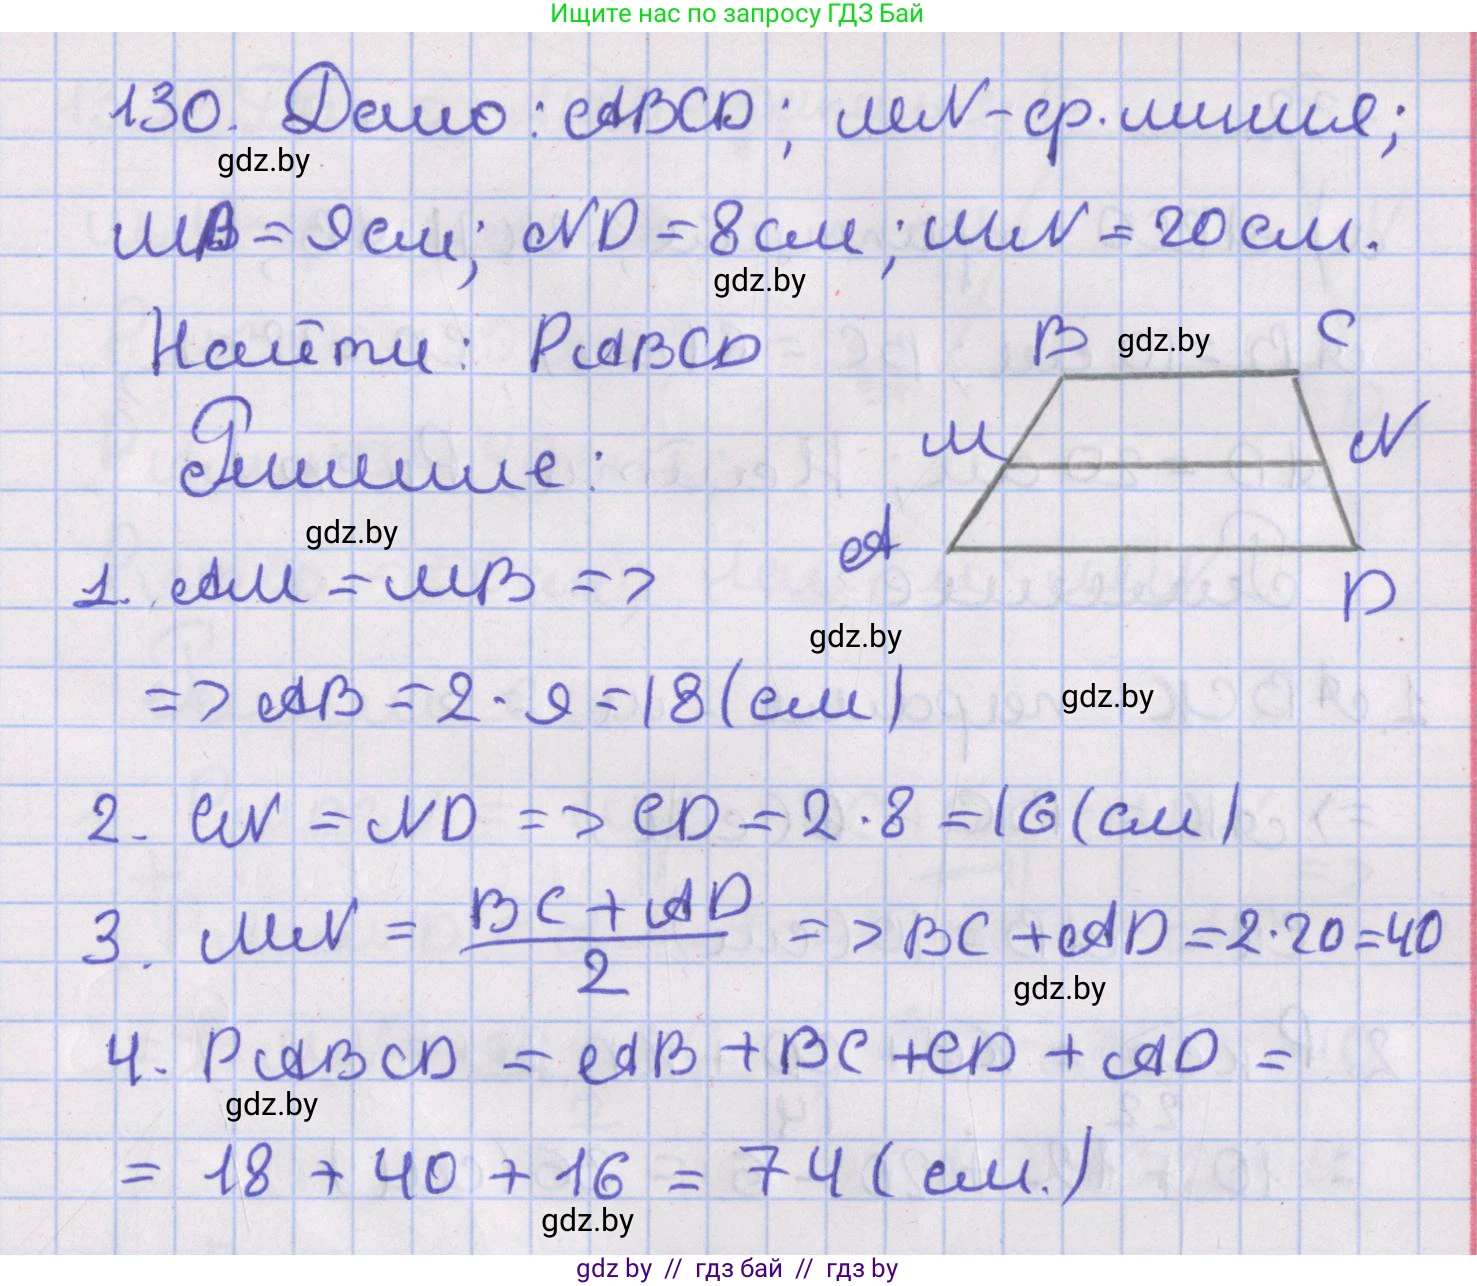 Ищите нас по запросу ГДЗ Бай
130. Дано: ABCD; MN - ср. линия;
gdz.by
MB = 9 см; ND = 8 см; MN = 20 см.
gdz.by
Найти: PABCD
B gdz.by C
M N
Решение:
gdz.by
A
D
1. AM = MB =>
gdz.by
=> AB = 2 · 9 = 18 (см)
gdz.by
2. CN = ND => CD = 2 · 8 = 16 (см)
3. MN = BC + AD / 2 => BC + AD = 2 · 20 = 40
gdz.by
4. PABCD = AB + BC + CD + AD =
gdz.by
= 18 + 40 + 16 = 74 (см.)
gdz.by
gdz by // гдз бай // гдз by